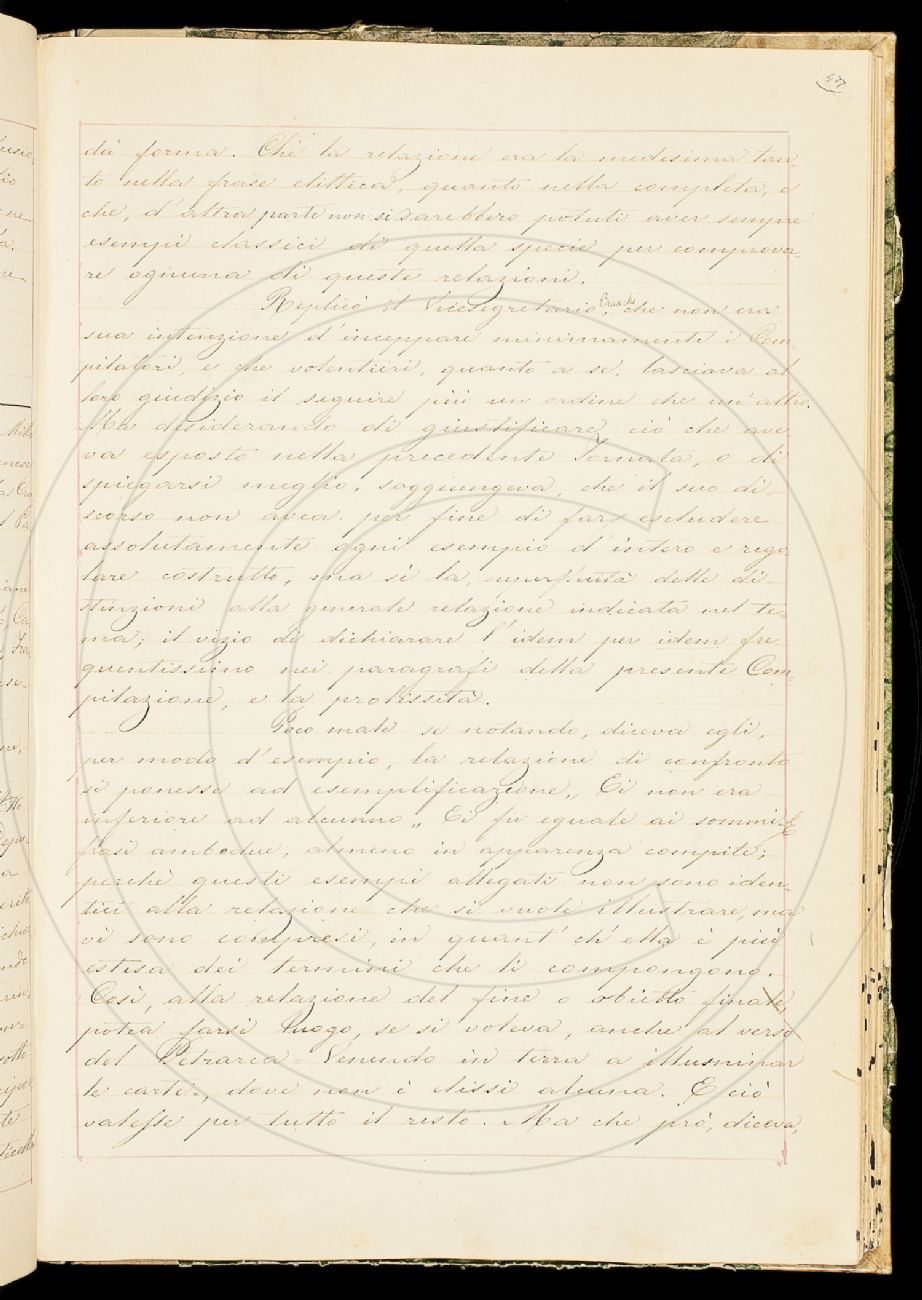 dà forma. Chè la relazione era la medesima tan
to nella frase elittica, quanto nella completa, e
che, d'altra parte non si sarebbero potuti aver sempre
esempi classici di quella specie per comprova=
re ognuna di queste relazioni.
Replicò il Vicesegretario Bianchi, che non era
sua intenzione d'inceppare minimamente i Com
pilatori, e che volentieri, quanto a sè, lasciava al
loro giudizio il seguire più un ordine che un'altro.
Ma desiderando di giustificare ciò che ave
va esposto nella precedente Tornata, o di
spiegarsi meglio, soggiungeva, che il suo di
scorso non avea per fine di far escludere
assolutamente ogni esempio d'intero e rego
lare costrutto, ma sì la superfluità delle di
stinzioni alla generale relazione indicata nel te
ma; il vizio di dichiarare l'idem per idem fre
quentissimo nei paragrafi della presente Com=
pilazione, e la prolissità.
Poco male se notando, diceva egli,
per modo d'esempio, la relazione di confronto
si ponesse ad esemplificazione „ Ei non era
inferiore ad alcuno „ Ei fu eguale ai sommi
frasi ambedue, almeno in apparenza compite;
perchè questi esempi allegati non sono iden=
tici alla relazione che si vuole illustrare, ma
vi sono compresi, in quant'ch'ella è più
estesa dei termini che li compongono.
Così, alla relazione del fine o obietto finale,
potea farsi luogo, se si voleva, anche al verso
del Petrarca = Venendo in terra a illuminar
le carte =, dove non è elissi alcuna. E ciò
valesse per tutto il resto. Ma che però, diceva,